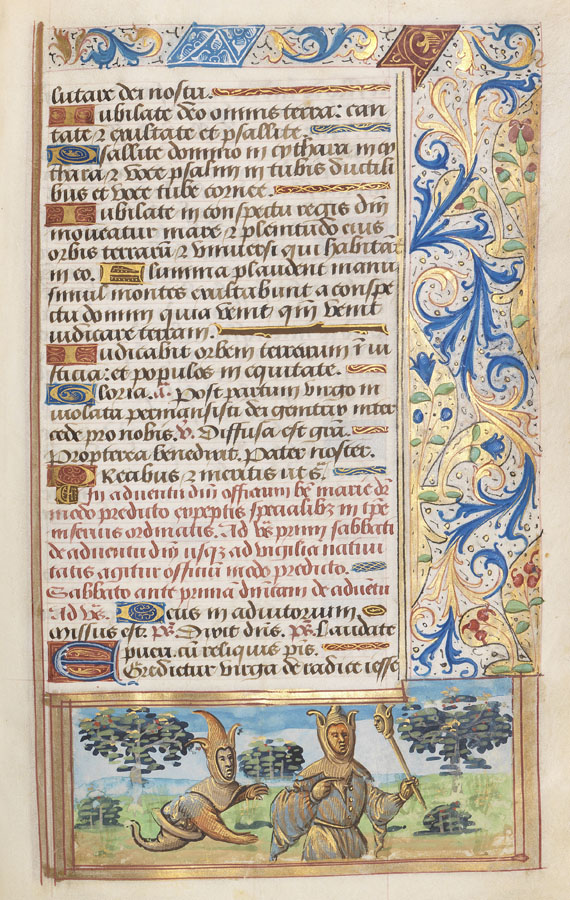 lutare dei nostri.
Iubilate deo omnis terra: can
tate ⁊ exultate et psallite.
Psallite domino in cythara in cy
thara ⁊ voce psalmi in tubis ductili
bus et voce tube cornee.
Iubilate in conspectu regis dñi
moueatur mare ⁊ plenitudo eius
orbis terrarū ⁊ vniuersi qui habitāt
in eo. Flumina plaudent manu
simul montes exultabunt a conspe
ctu domini quia venit qm̄ venit
iudicare terram.
Iudicabit orbem terrarum ī iu
sticia: et populos in equitate.
Gloria. Post partum virgo in
uiolata permansisti dei genitrix inter
cede pro nobis. ℣. Diffusa est grā.
Propterea benedixit. Pater noster.
Precibus ⁊ meritis ut s̄.
In aduentu dñi officium bē marie dr̄
modo predicto exceptis specialibꝫ in ipe
inseruis ordinatis. Ad vēs primi sabbati
de aduentu dñi usqꝫ ad vigiliā natiui
tatis agitur officiū modo predicto.
Sabbato ante primā dñicam de aduētu
Ad vēs. Deus in adiutorium
Missus est. ps̄. Dixit dñs. ps̄. Laudate
pueri. cū reliquis pīs.
Egredietur virga de radice iesse